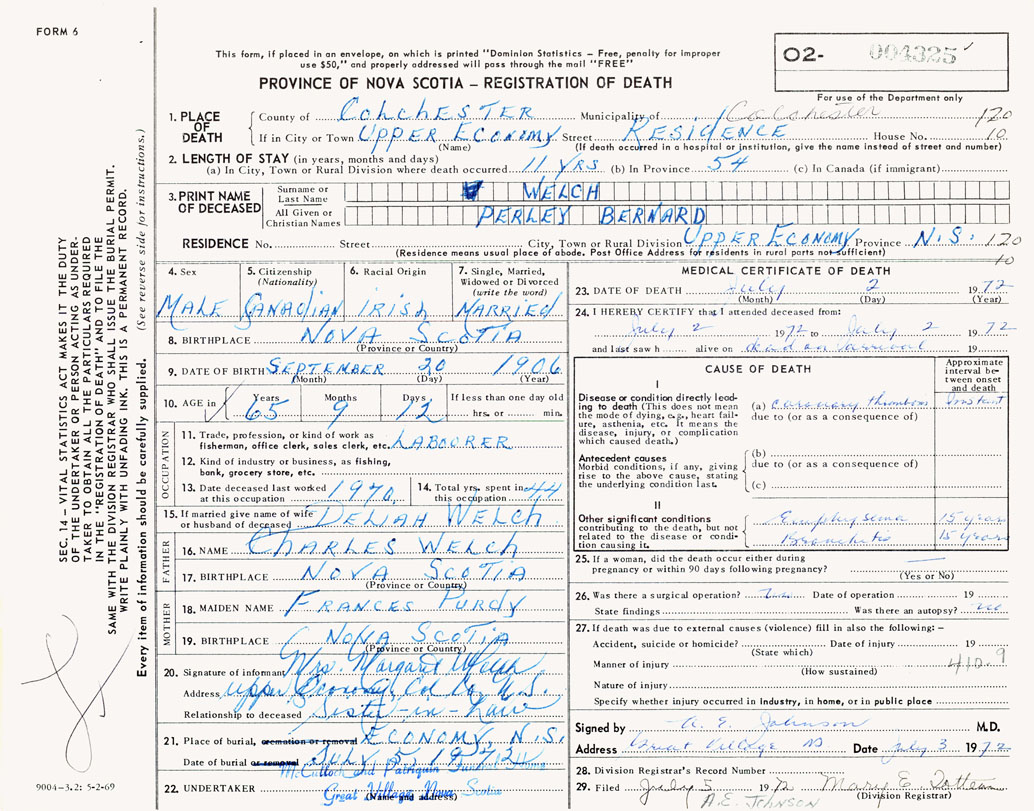 FORM 6
This form, if placed in an envelope, on which is printed "Dominion Statistics – Free, penalty for improper
use $50," and properly addressed will pass through the mail "FREE"
PROVINCE OF NOVA SCOTIA – REGISTRATION OF DEATH
O2- 004325
For use of the Department only
1. PLACE OF DEATH County of COLCHESTER Municipality of Colchester 120
If in City or Town UPPER ECONOMY Street RESIDENCE House No. 10
(Name) (If death occurred in a hospital or institution, give the name instead of street and number)
2. LENGTH OF STAY (in years, months and days)
(a) In City, Town or Rural Division where death occurred 11 YRS (b) In Province 54 (c) In Canada (if immigrant)
3. PRINT NAME OF DECEASED Surname or Last Name WELCH
All Given or Christian Names PERLEY BERNARD
RESIDENCE No. Street City, Town or Rural Division UPPER ECONOMY Province N.S. 120
10
(Residence means usual place of abode. Post Office Address for residents in rural parts not sufficient)
4. Sex 5. Citizenship (Nationality) 6. Racial Origin 7. Single, Married, Widowed or Divorced (write the word)
MALE CANADIAN IRISH MARRIED
8. BIRTHPLACE NOVA SCOTIA
(Province or Country)
9. DATE OF BIRTH SEPTEMBER 20 1906
(Month) (Day) (Year)
10. AGE in Years Months Days If less than one day old
65 9 12 hrs. or min.
OCCUPATION
11. Trade, profession, or kind of work as
fisherman, office clerk, sales clerk, etc. LABOURER
12. Kind of industry or business, as fishing,
bank, grocery store, etc.
13. Date deceased last worked at this occupation 1970 14. Total yrs. spent in this occupation 44
15. If married give name of wife or husband of deceased DELIAH WELCH
FATHER
16. NAME CHARLES WELCH
17. BIRTHPLACE NOVA SCOTIA
(Province or Country)
MOTHER
18. MAIDEN NAME FRANCES PURDY
19. BIRTHPLACE NOVA SCOTIA
(Province or Country)
20. Signature of informant Mrs. Margaret Welch
Address Upper Economy, Col Co, N.S.
Relationship to deceased Sister-in-Law
21. Place of burial, cremation or removal ECONOMY, N.S.
Date of burial or removal JULY 5, 1972
22. UNDERTAKER McCulloch and Patriquin Funeral Home
Great Village Nova Scotia
(Name and address)
MEDICAL CERTIFICATE OF DEATH
23. DATE OF DEATH July 2 1972
(Month) (Day) (Year)
24. I HEREBY CERTIFY that I attended deceased from:
July 2 1972 to July 2 1972
and last saw h alive on dead on arrival 19
CAUSE OF DEATH
Approximate interval between onset and death
I
Disease or condition directly leading to death (This does not mean the mode of dying, e.g., heart failure, asthenia, etc. It means the disease, injury, or complication which caused death.)
(a) coronary thrombosis Instant
due to (or as a consequence of)
Antecedent causes
Morbid conditions, if any, giving rise to the above cause, stating the underlying condition last.
(b)
due to (or as a consequence of)
(c)
II
Other significant conditions contributing to the death, but not related to the disease or condition causing it.
Emphysema 15 years
Bronchitis 15 years
25. If a woman, did the death occur either during
pregnancy or within 90 days following pregnancy?
(Yes or No)
26. Was there a surgical operation? Date of operation 19
State findings Was there an autopsy? no
27. If death was due to external causes (violence) fill in also the following: –
Accident, suicide or homicide? Date of injury 19
(State which)
Manner of injury 410.9
(How sustained)
Nature of injury
Specify whether injury occurred in industry, in home, or in public place
Signed by A. E. Johnson M.D.
Address Great Village NS Date July 3 1972
28. Division Registrar's Record Number
29. Filed July 5 1972 Mary E.
(Division Registrar)
A.E. JOHNSON
SEC. 14 – VITAL STATISTICS ACT MAKES IT THE DUTY
OF THE UNDERTAKER OR PERSON ACTING AS UNDER-
TAKER TO OBTAIN ALL THE PARTICULARS REQUIRED
IN THE "REGISTRATION OF DEATH" AND TO FILE THE
SAME WITH THE DIVISION REGISTRAR WHO SHALL ISSUE THE BURIAL PERMIT.
WRITE PLAINLY WITH UNFADING INK. THIS IS A PERMANENT RECORD.
Every item of information should be carefully supplied. (See reverse side for instructions.)
9004-3.2: 5-2-69